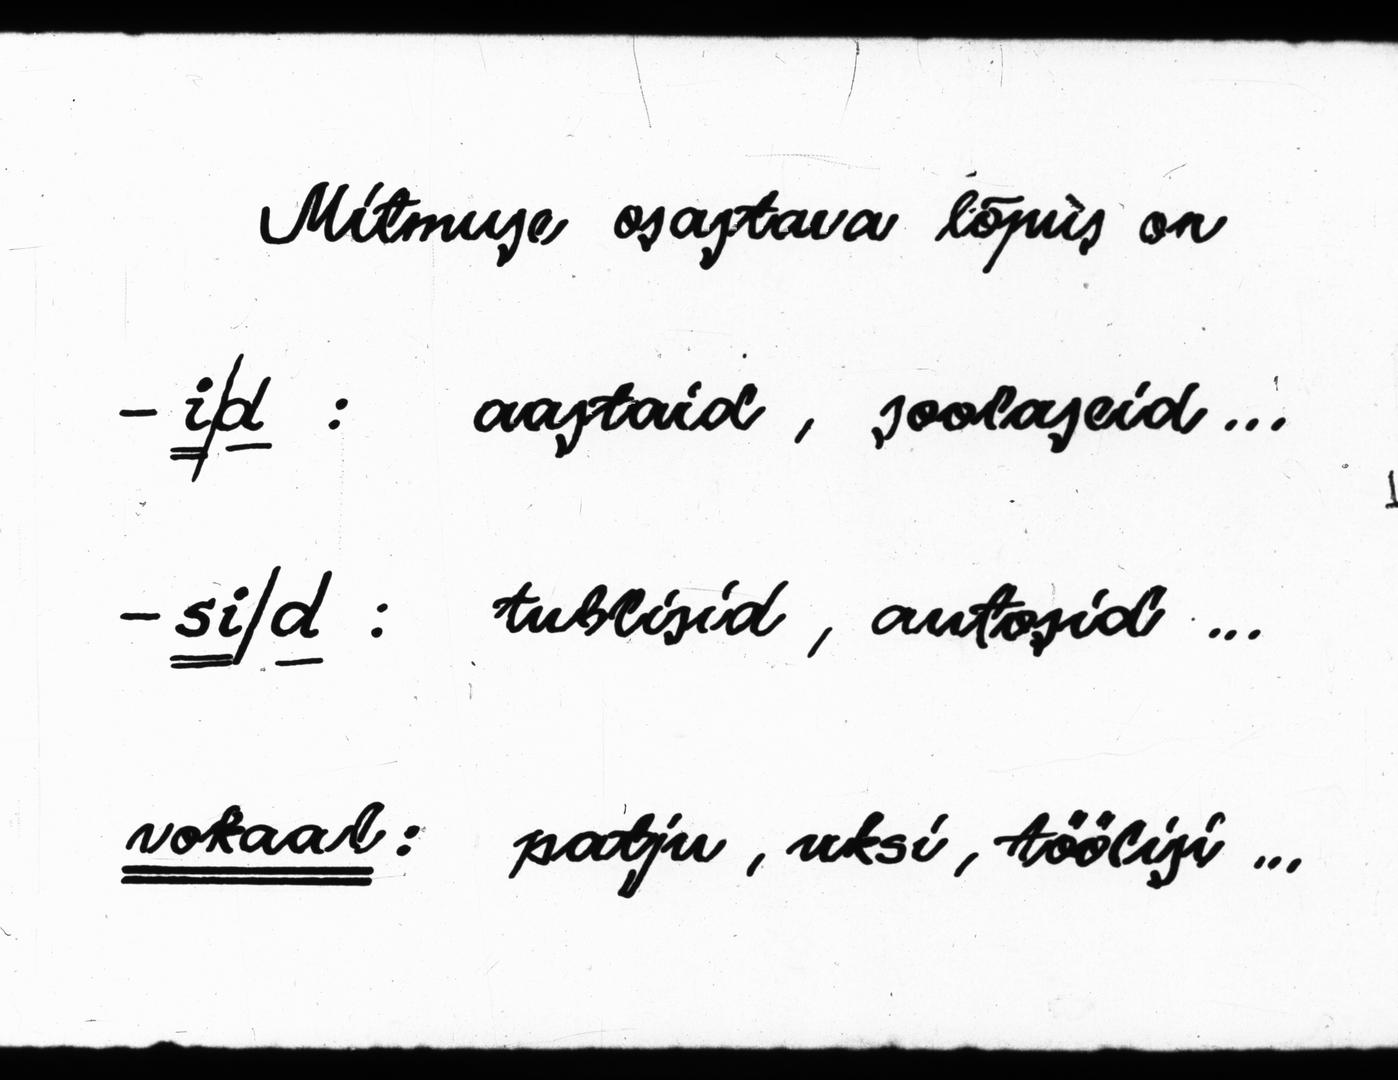 Mitmuse osastava lõpuis on
- i/d : aastaid, soolaseid ...
- si/d : tublisid, autosid ...
vokaal: patju, uksi, töölisi ...